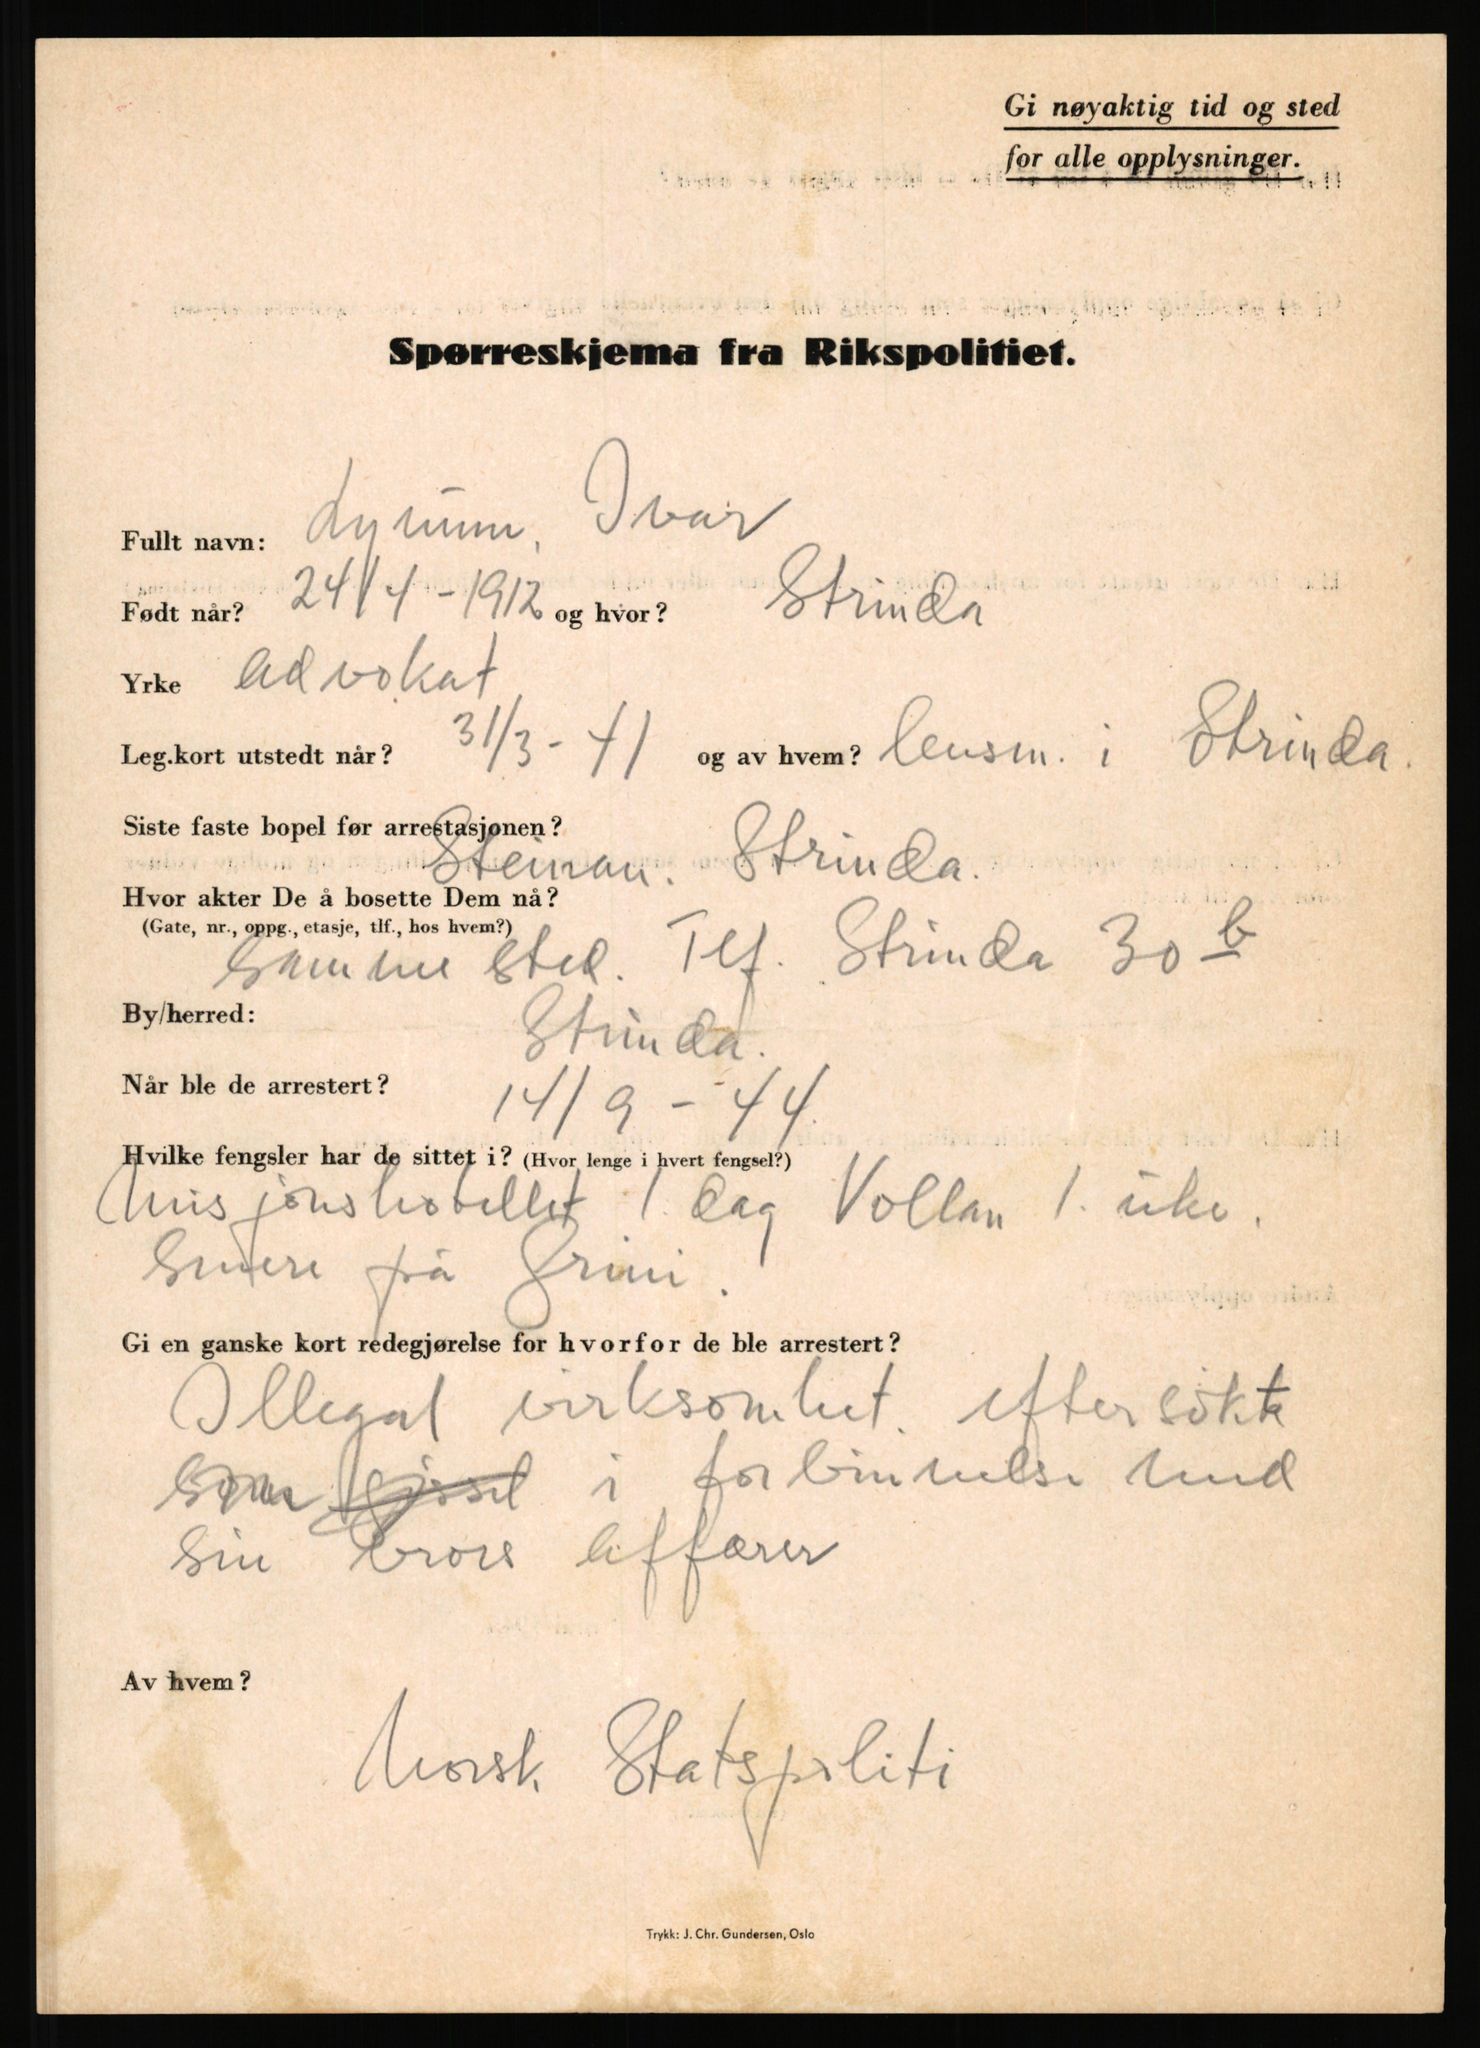 Gi nøyaktig tid og sted
for alle opplysninger.
Spørreskjema fra Rikspolitiet.
Fullt navn: Lynum, Ivar
Født når? 24/4-1912 og hvor? Strinda
Yrke Advokat
Leg.kort utstedt når? 31/3-41 og av hvem? lensm. i Strinda.
Siste faste bopel før arrestasjonen?
Steinan. Strinda.
Hvor akter De å bosette Dem nå?
(Gate, nr., oppg., etasje, tlf., hos hvem?)
Samme sted. Tlf. Strinda 30 b
By/herred: Strinda.
Når ble de arrestert? 14/9-44.
Hvilke fengsler har de sittet i? (Hvor lenge i hvert fengsel?)
Misjonshotellet 1. dag Vollan 1. uke.
Senere på Grini.
Gi en ganske kort redegjørelse for hvorfor de ble arrestert?
Illegal virksomhet. eftersøkte
som gissel i forbinnelse med
sin brors affærer
Av hvem?
Norsk Statspoliti
Trykk: J. Chr. Gundersen, Oslo